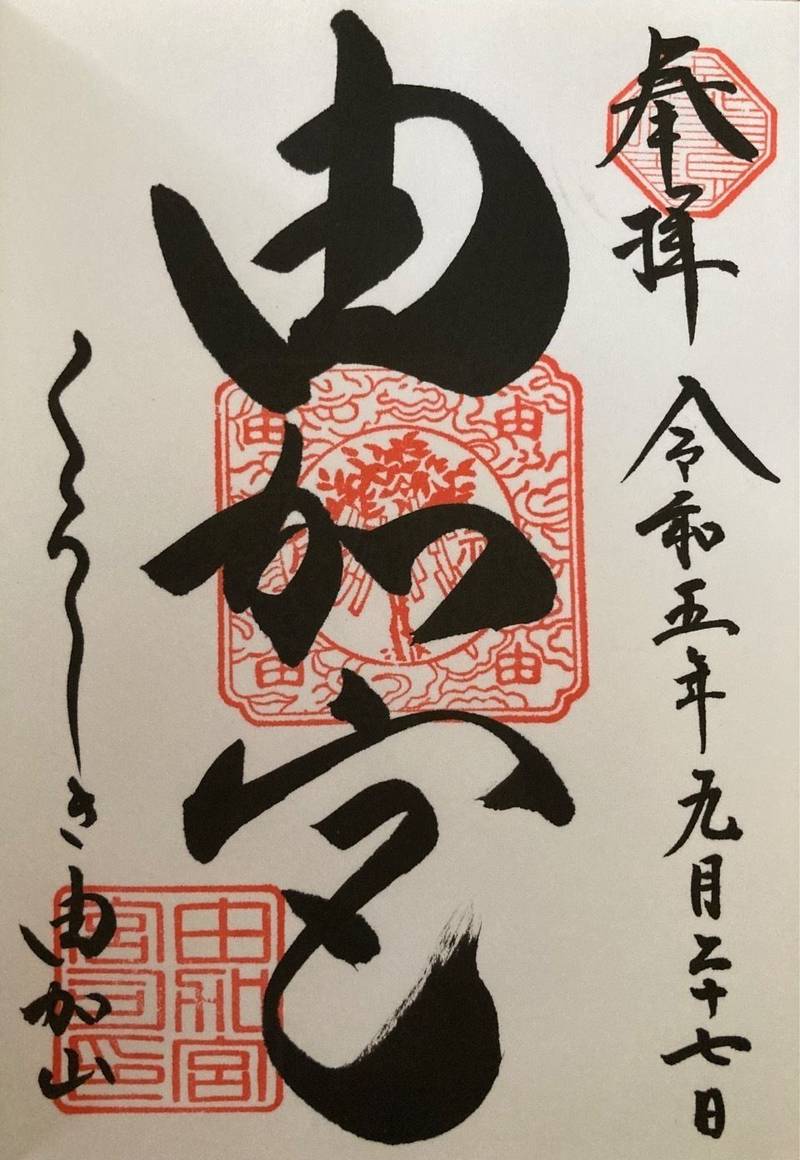 奉拝
令和五年九月二十七日
由加宮
由 由
由 由
くらしき由加山
宮司印